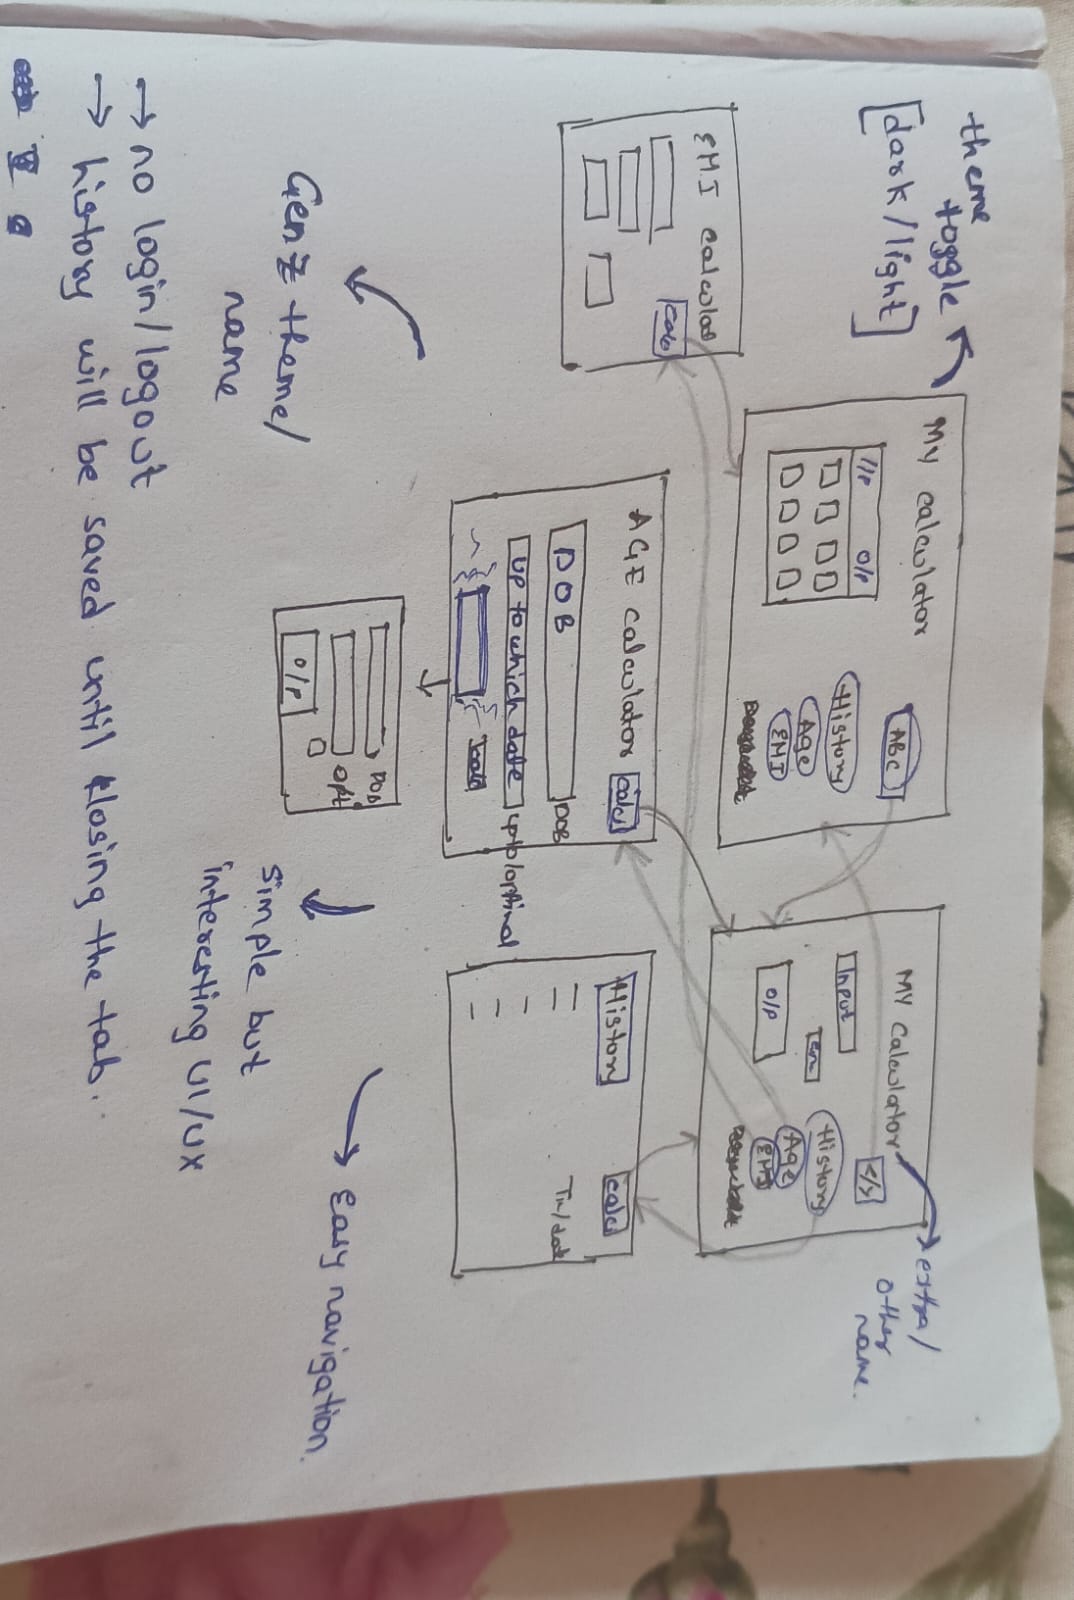 theme
toggle
[dark/light]
My calculator
I/P O/P
ABC
History
Age
EMI
MY Calculator
</>
Input
O/P
History
Age
EMI
extra/
other
name.
EMI calculat
AGE calculator
calci
DOB
DOB
up to which date
History
calci
DOB
opt
O/P
Gen Z theme/
name
simple but
interesting UI/UX
Easy navigation.
→ no login/logout
→ history will be saved until closing the tab.